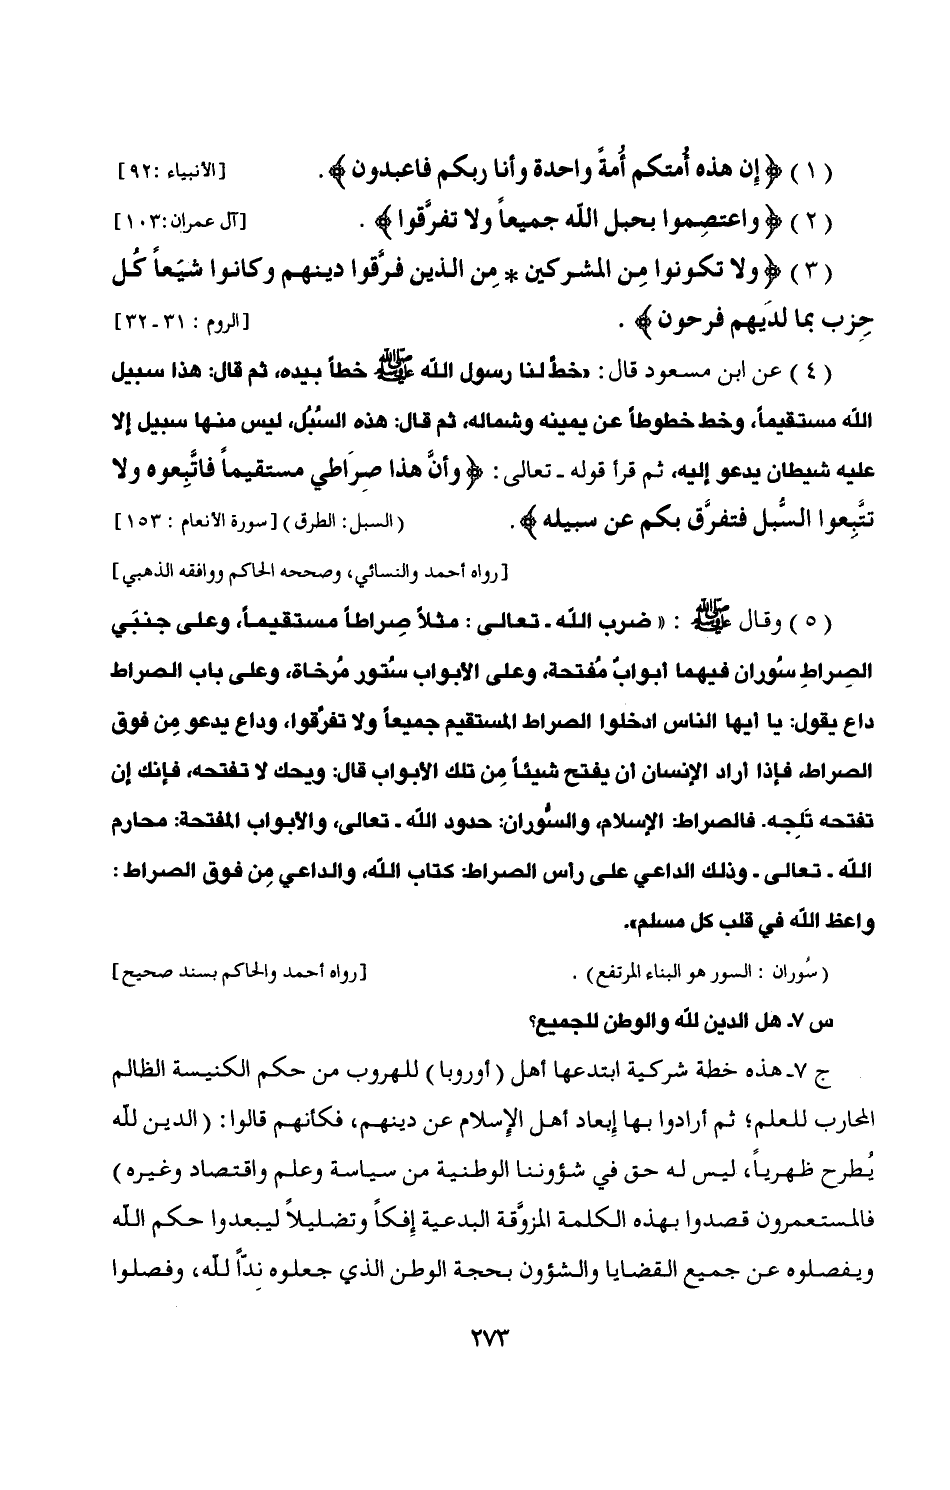 (١) ﴿إن هذه أُمتكم أُمةً واحدة وأنا ربكم فاعبدون﴾. [الأنبياء :٩٢]
(٢) ﴿واعتصِموا بحبل الله جميعاً ولا تفرَّقوا﴾ . [آل عمران:١٠٣]
(٣) ﴿ولا تكونوا مِن المشركين * مِن الذين فرَّقوا دينهم وكانوا شيَعاً كُل
حِزب بما لدَيهم فرحون﴾ . [الروم : ٣١-٣٢]
(٤) عن ابن مسعود قال: «خطَّ لنا رسول الله ﷺ خطاً بيده، ثم قال: هذا سبيل
الله مستقيماً، وخط خطوطاً عن يمينه وشماله، ثم قال: هذه السُبُل، ليس منها سبيل إلا
عليه شيطان يدعو إليه، ثم قرأ قوله - تعالى: ﴿وأنَّ هذا صِرَاطي مستقيماً فاتَّبِعوه ولا
تتَّبِعوا السُّبل فتفرَّق بكم عن سبيله﴾. (السبل: الطرق) [سورة الأنعام : ١٥٣]
[رواه أحمد والنسائي، وصححه الحاكم ووافقه الذهبي]
(٥) وقال ﷺ : «ضرب الله - تعالى : مثلاً صِراطاً مستقيماً، وعلى جنبَي
الصِراطِ سُوران فيهما أبوابٌ مُفتحة، وعلى الأبواب ستُور مُرخاة، وعلى باب الصراط
داع يقول: يا أيها الناس ادخلوا الصراط المستقيم جميعاً ولا تفرَّقوا، وداع يدعو مِن فوق
الصراط، فإذا أراد الإنسان أن يفتح شيئاً مِن تلك الأبواب قال: ويحك لا تفتحه، فإنك إن
تفتحه تَلِجه. فالصراط: الإسلام، والسُّوران: حدود الله - تعالى، والأبواب المفتحة: محارم
الله - تعالى - وذلك الداعي على رأس الصراط: كتاب الله، والداعي مِن فوق الصراط :
واعظ الله في قلب كل مسلم».
(سُوران : السور هو البناء المرتفع) . [رواه أحمد والحاكم بسند صحيح]
س ٧- هل الدين لله والوطن للجميع؟
ج ٧- هذه خطة شركية ابتدعها أهل (أوروبا) للهروب من حكم الكنيسة الظالم
المحارب للعلم؛ ثم أرادوا بها إبعاد أهل الإسلام عن دينهم، فكأنهم قالوا: (الدين لله
يُطرح ظهرياً، ليس له حق في شؤوننا الوطنية من سياسة وعلم واقتصاد وغيره)
فالمستعمرون قصدوا بهذه الكلمة المزوَّقة البدعية إفكاً وتضليلاً ليبعدوا حكم الله
ويفصلوه عن جميع القضايا والشؤون بحجة الوطن الذي جعلوه نِدّاً لله، وفصلوا
٢٧٣